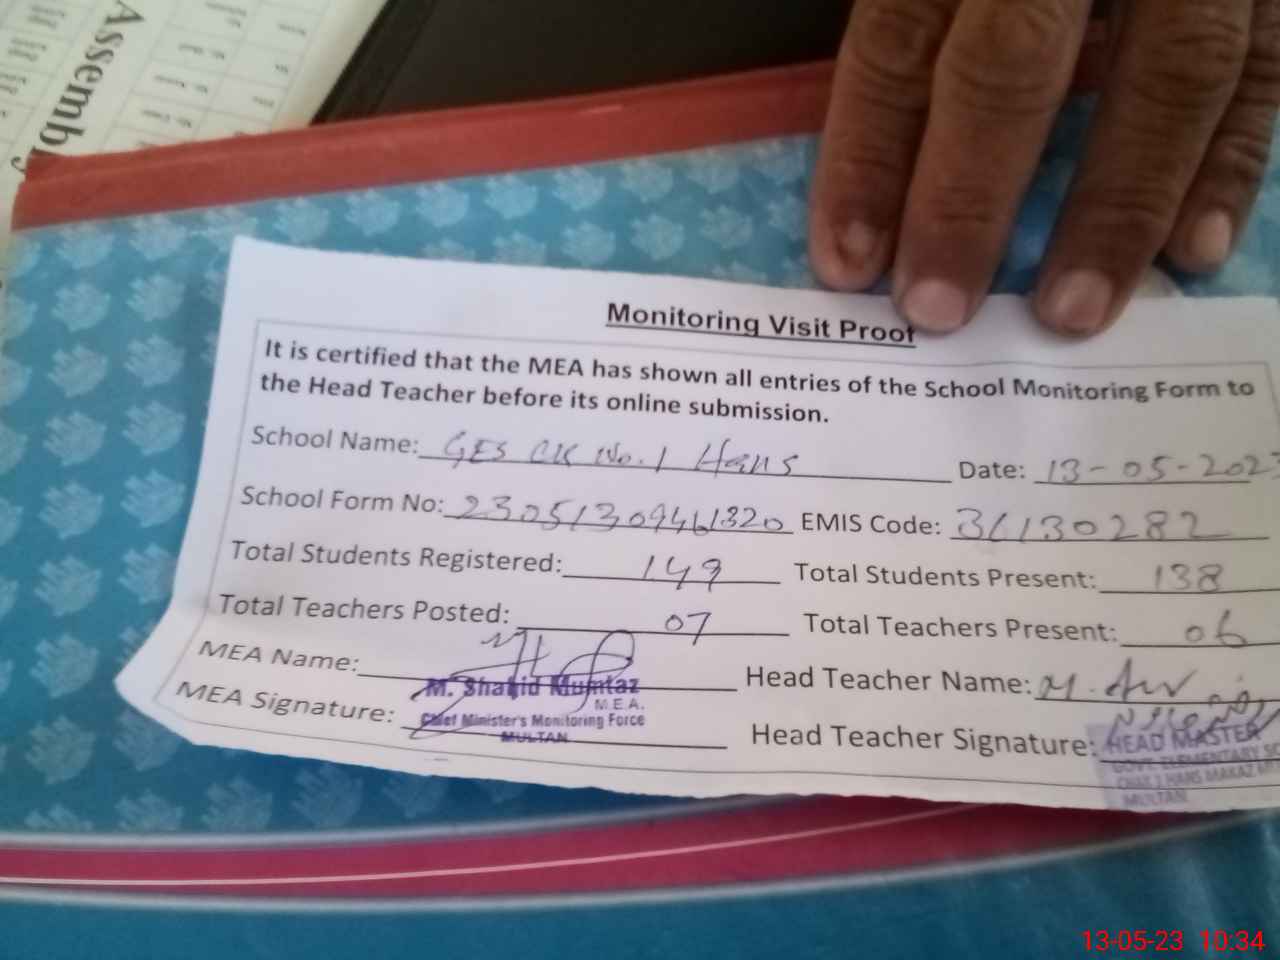 Assembly
Monitoring Visit Proof
It is certified that the MEA has shown all entries of the School Monitoring Form to
the Head Teacher before its online submission.
School Name: GES CK No. 1 Hans Date: 13-05-2023
School Form No: 230513094461320 EMIS Code: 36130282
Total Students Registered: 149 Total Students Present: 138
Total Teachers Posted: 07 Total Teachers Present: 06
MEA Name: Head Teacher Name: M.
M. Shahid Mumtaz
M.E.A.
MEA Signature: Chief Minister's Monitoring Force
MULTAN
Head Teacher Signature: HEAD MASTER
GOVT. ELEMENTARY
CHAK 1 HANS MAKAZ
MULTAN
13-05-23 10:34